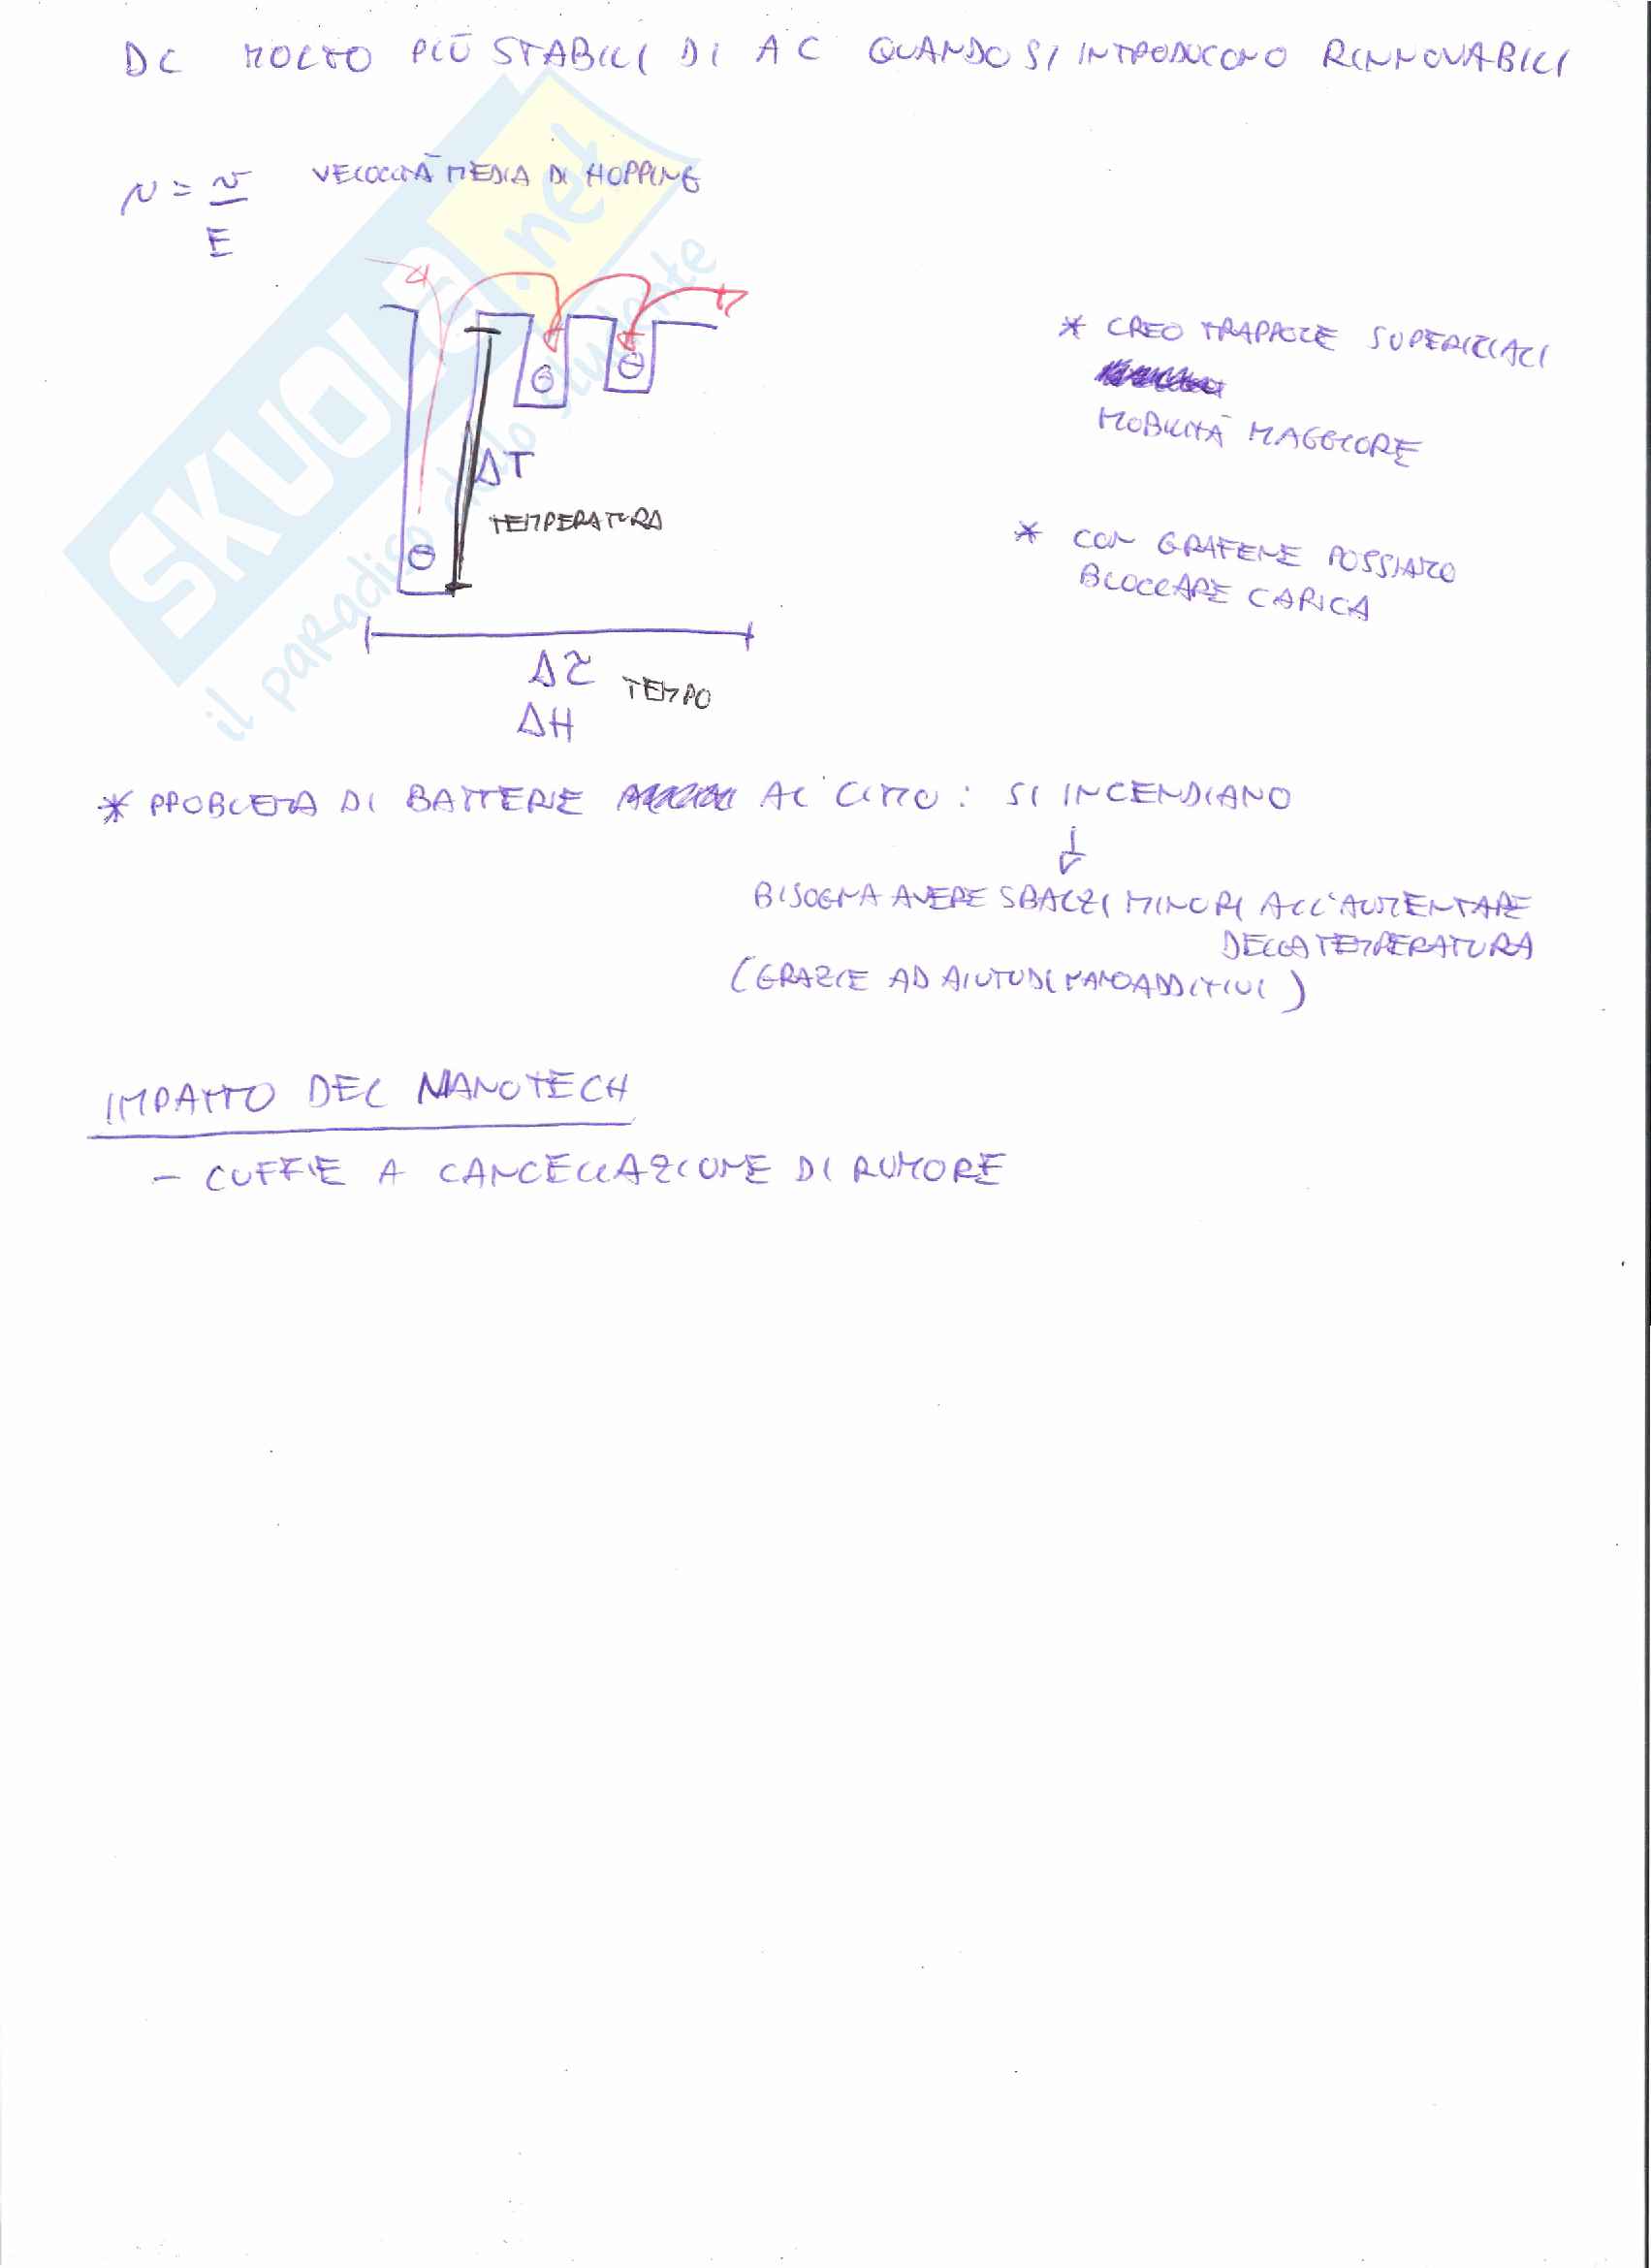 DC MOLTO PIÙ STABILI DI AC QUANDO SI INTRODUCONO RINNOVABILI
μ = v/E VELOCITÀ MEDIA DI HOPPING
* CREO TRAPPOLE SUPERFICIALI
MOBILITÀ MAGGIORE
ΔT
TEMPERATURA
* CON GRAFENE POSSIAMO
BLOCCARE CARICA
Δτ TEMPO
ΔH
* PROBLEMA DI BATTERIE AL LITIO: SI INCENDIANO
↓
BISOGNA AVERE SBALZI MINORI ALL'AUMENTARE
DELLA TEMPERATURA
(GRAZIE AD AIUTO DI NANOADDITIVI)
IMPATTO DEL NANOTECH
- CUFFIE A CANCELLAZIONE DI RUMORE
SKUOLA.net
il paradiso dello studente